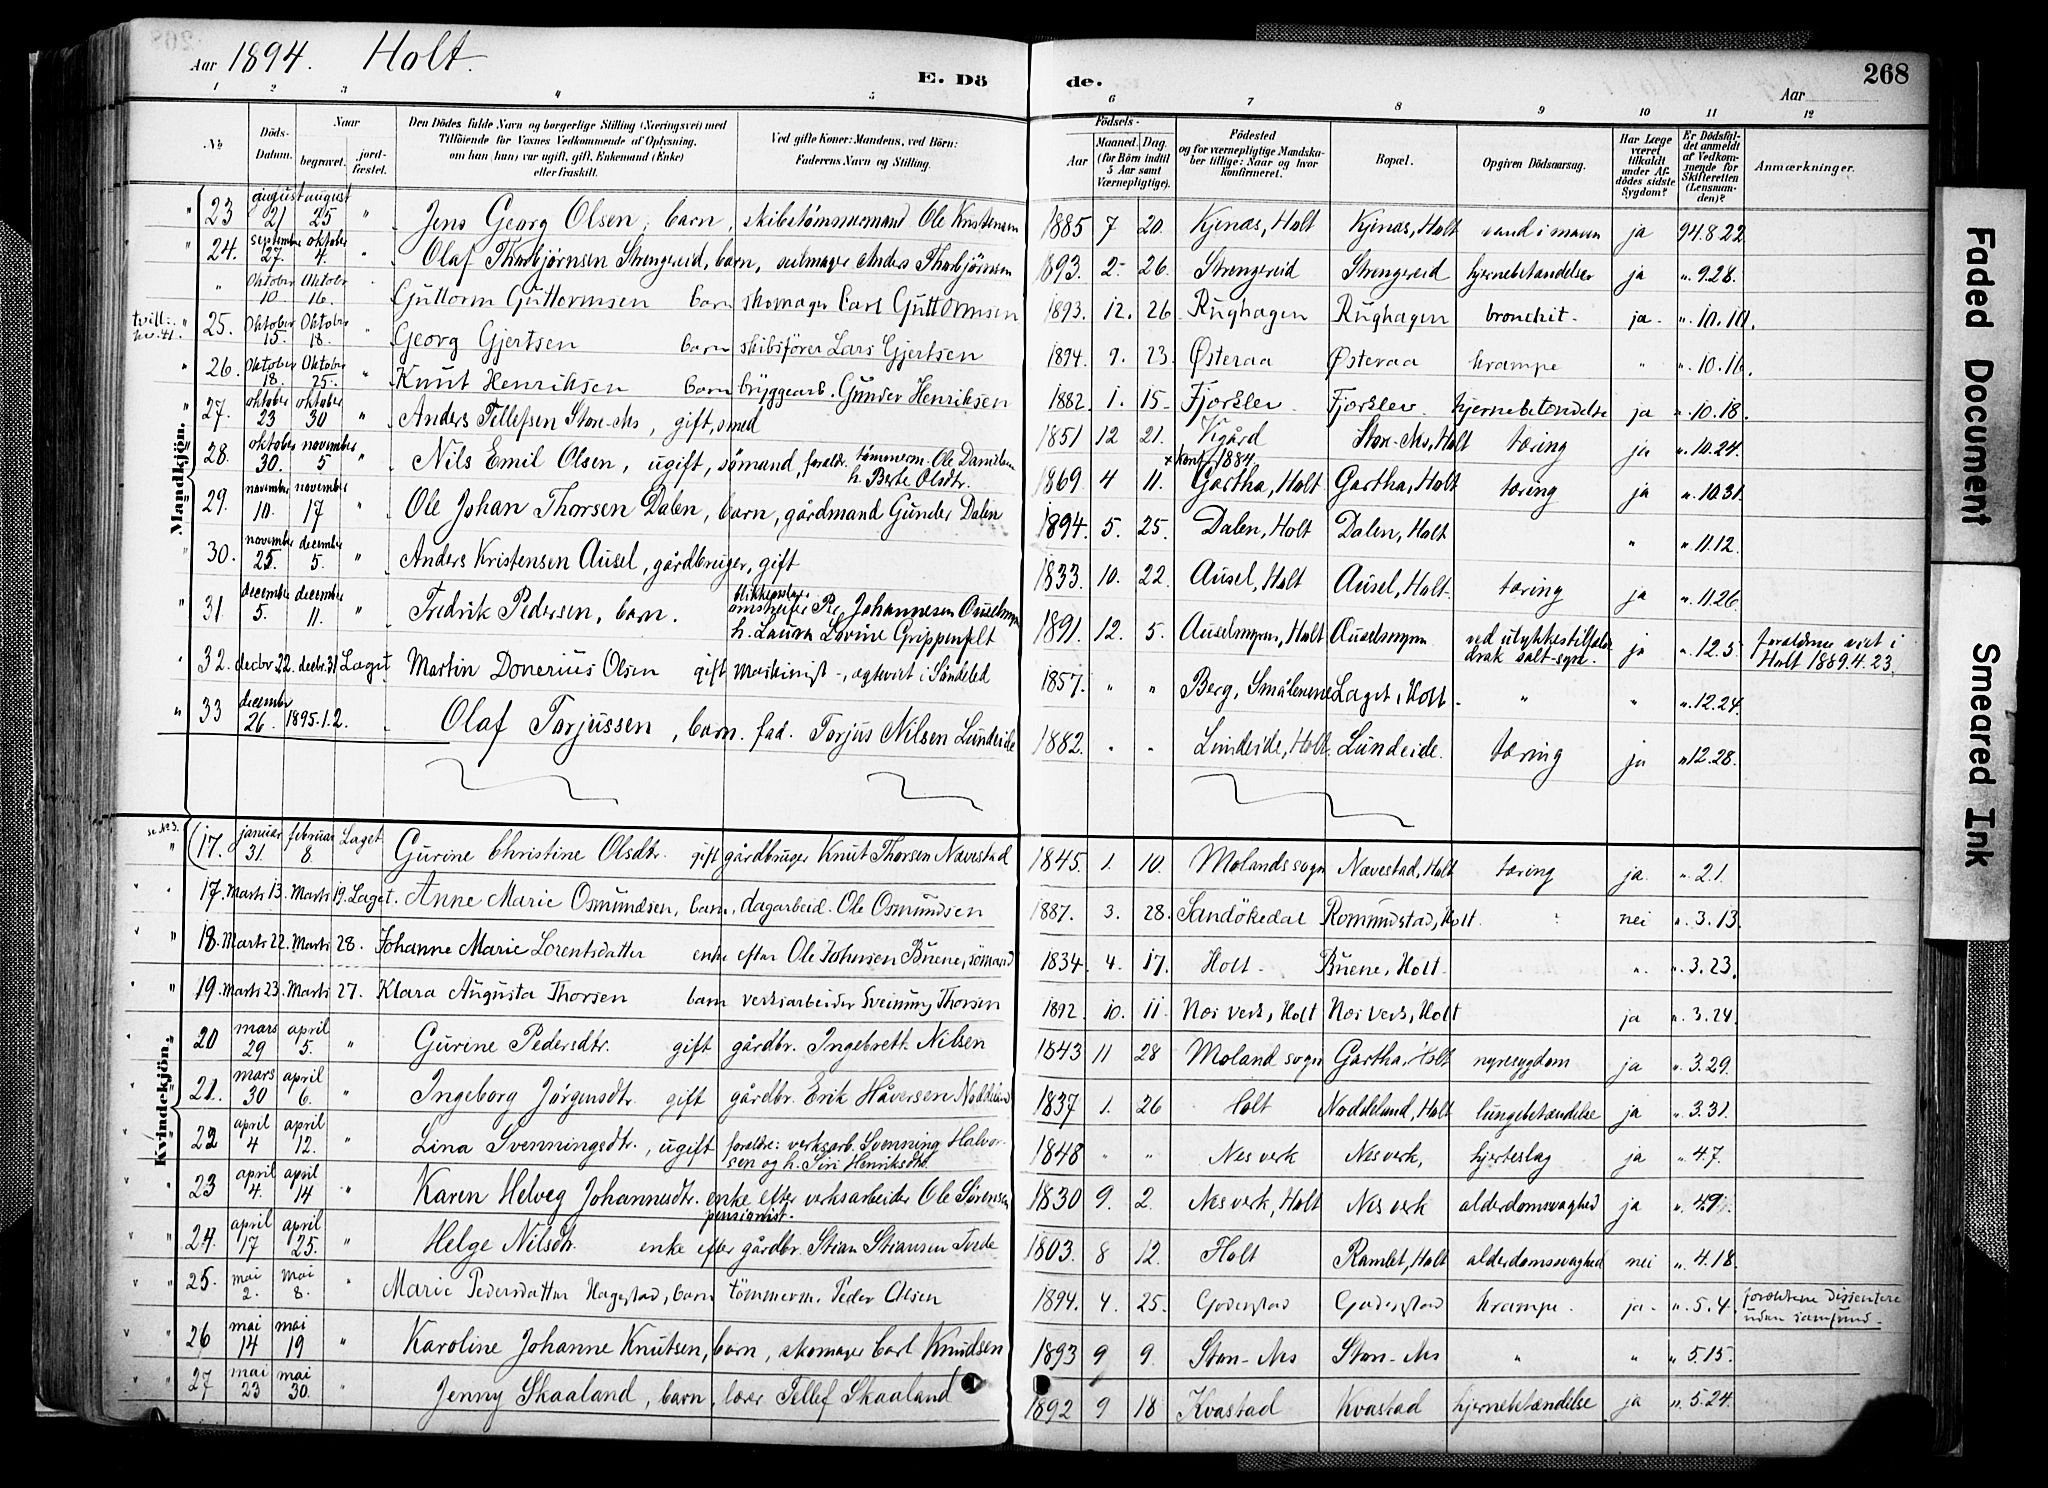 Aar 1894. Holt.
E. Dö de.
268
Aar
1 2 3 4 5 6 7 8 9 10 11 12
No
Döds-Datum.
Naar begravet. jordfæstet.
Den Dödes fulde Navn og borgerlige Stilling (Næringsvei) med Tilföiende for Voxnes Vedkommende af Oplysning, om han (hun) var ugift, gift, Enkemand (Enke) eller fraskilt.
Ved gifte Koner: Mandens, ved Börn: Faderens Navn og Stilling.
Födsels-
Aar Maaned. Dag. (for Börn indtil 5 Aar samt Værnepligtige).
Födested og for værnepligtige Mandskaber tillige: Naar og hvor konfirmeret.
Bopæl.
Opgiven Dödsaarsag.
Har Læge været tilkaldt under Afdödes sidste Sygdom?
Er Dödsfaldet anmeldt af Vedkommende for Skifteretten (Lensmanden)?
Anmærkninger.
Mandkjön.
" 23 august 21 august 25 " Jens Georg Olsen, barn, skibstømmermand Ole Kristensen 1885 7 20. Kjenås, Holt Kjenås, Holt vand i maven ja 94.8.22
" 24. september 27. oktober 4. " Olaf Thorbjørnsen Strengereid, barn, seilmager Anders Thorbjørnsen 1893. 2. 26 Strengereid Strengereid hjernebetændelse ja ". 9.28.
" Oktober 10. Oktober 16. Guttorm Guttormsen barn skomager Carl Guttormsen 1893. 12. 26 Rughagen Rughagen bronchit. ja. ". 10.10.
" 25. Oktober 15. Oktober 18. " Georg Gjertsen barn skibsfører Lars Gjertsen 1894 9. 23. Østeraa Østeraa krampe " ". 10.16.
" 26. Oktober 18. Oktober 25. " Knut Henriksen barn bryggearb. Gunder Henriksen 1882. 1. 15. Fjorslev. Fjorslev. hjernebetændelse ja ". 10.18.
" 27. oktober 23 oktober 30 " Anders Tellefsen Stan-Næs, gift, smed 1851 12 21. Vigård Stan-Næs, Holt tæring ja ". 10.24.
28. oktober 30. november 5 " Nils Emil Olsen, ugift, sömand, foraldr. tömmerm. Ole Danielsen h. Berte Olsdtr. 1869 4 11. konf. 1884 Gartha, Holt Gartha, Holt tæring ja ". 10.31.
29. november 10. november 17 " Ole Johan Thorsen Dalen, barn, gårdmand Gunder Dalen 1894. 5. 25. Dalen, Holt Dalen, Holt " ". 11.12.
30. november 25. december 5. " Anders Kristensen Ausel, gårdbruger, gift 1833. 10. 22 Ausel, Holt Ausel, Holt. tæring ja ". 11.26.
" 31 december 5. december 11. " Fredrik Pedersen, barn. Johannesen Auselmyra h. Laura Lovine Grippenfelt 1891. 12. 5. Auselmyra, Holt Auselmyra ved ulykkestilfælde drak salt-syre. ja ". 12.5 forældrene viet i Holt 1889.4.23.
" 32. decbr 22. decbr. 31. Laget. Martin Donerius Olsen gift Maskinist -, ægteviet i Søndeled 1857. " " Berg, Smålenene Laget, Holt. " " ". 12.24.
" 33 december 26. 1895.1.2. Olaf Torjussen, barn. fad. Torjus Nilsen Lundeide 1882. " " Lundeide, Holt. Lundeide. tæring ja ". 12.28.
Kvindekjön.
se No 3.
" (17. januar 31. februar 8. Laget. Gurine Christine Olsdtr. gift gårdbruger Knut Thorsen Nævestad 1845. 1. 10. Molands sogn Nævestad, Holt tæring ja. ". 2.1.
" 17. Marts 13. Marts 19. Laget. Anne Marie Osmundsen, barn, dagarbeid. Ole Osmundsen 1887. 3. 28. Sandökedal Romundstad, Holt. nei ". 3.13.
" 18. Marts 22. Marts 28. Johanne Marie Lorentsdatter enke efter Ole Johnsen Buene, sömand 1834. 4. 17. Holt. Buene, Holt. ". ". 3.23.
" 19. Marts 23. Marts 27. Klara Augusta Thorsen barn verksarbeider Sveinung Thorsen 1892. 10. 11. Nes verk, Holt Nes verk, Holt ja ". 3.24.
20 mars 29 april 5. " Gurine Pedersdtr. gift gårdbr. Ingebrett Nilsen 1843 11 28 Moland sogn Gartha, Holt nyresygdom ja ". 3.29.
21. mars 30 april 6. " Ingeborg Jörgensdtr. gift gårdbr. Erik Håversen Noddeland 1837 1. 26 Holt Noddeland, Holt lungebetændelse ja ". 3.31.
22 april 4 april 12. " Lina Svenningsdtr., ugift foraldre: verksarb. Svenning Halvorsen og h. Siri Henriksdtr. 1848 " " Nes verk Nes verk, hjerteslag ja ". 4.7.
23 april 4. april 14 " Karen Helveg Johannesdtr. enke efter verksarbeider Ole Sörensen pensionist. 1830 9. 2. Nes verk, Holt Nes verk alderdomsvaghed ja ". 4.9.
24. april 17 april 25. " Helge Nilsdtr. enke efter gårdbr. Stian Stiansen Tvede 1803. 8 12. Holt Ramlet, Holt alderdomssvaghed nei ". 4.18.
25. mai 2. mai 8. " Marie Pedersdatter Hagestad, barn tömmerm. Peder Olsen 1894. 4. 25. Goderstad Goderstad krampe. ja. ". 5.4. forældrene dissentere uden samfund.
26 mai 14 mai 19 " Karoline Johanne Knutsen, barn, skomager Carl Knudsen 1893 9 9. Stan-Næs Stan-Næs " " ". 5.15.
27 mai 23 mai 30. " Jenny Skaaland, barn, lærer Tellef Skaaland 1892 9 18 Kvastad Kvastad hjernebetændelse ja ". 5.24.
Faded Document
Smeared Ink